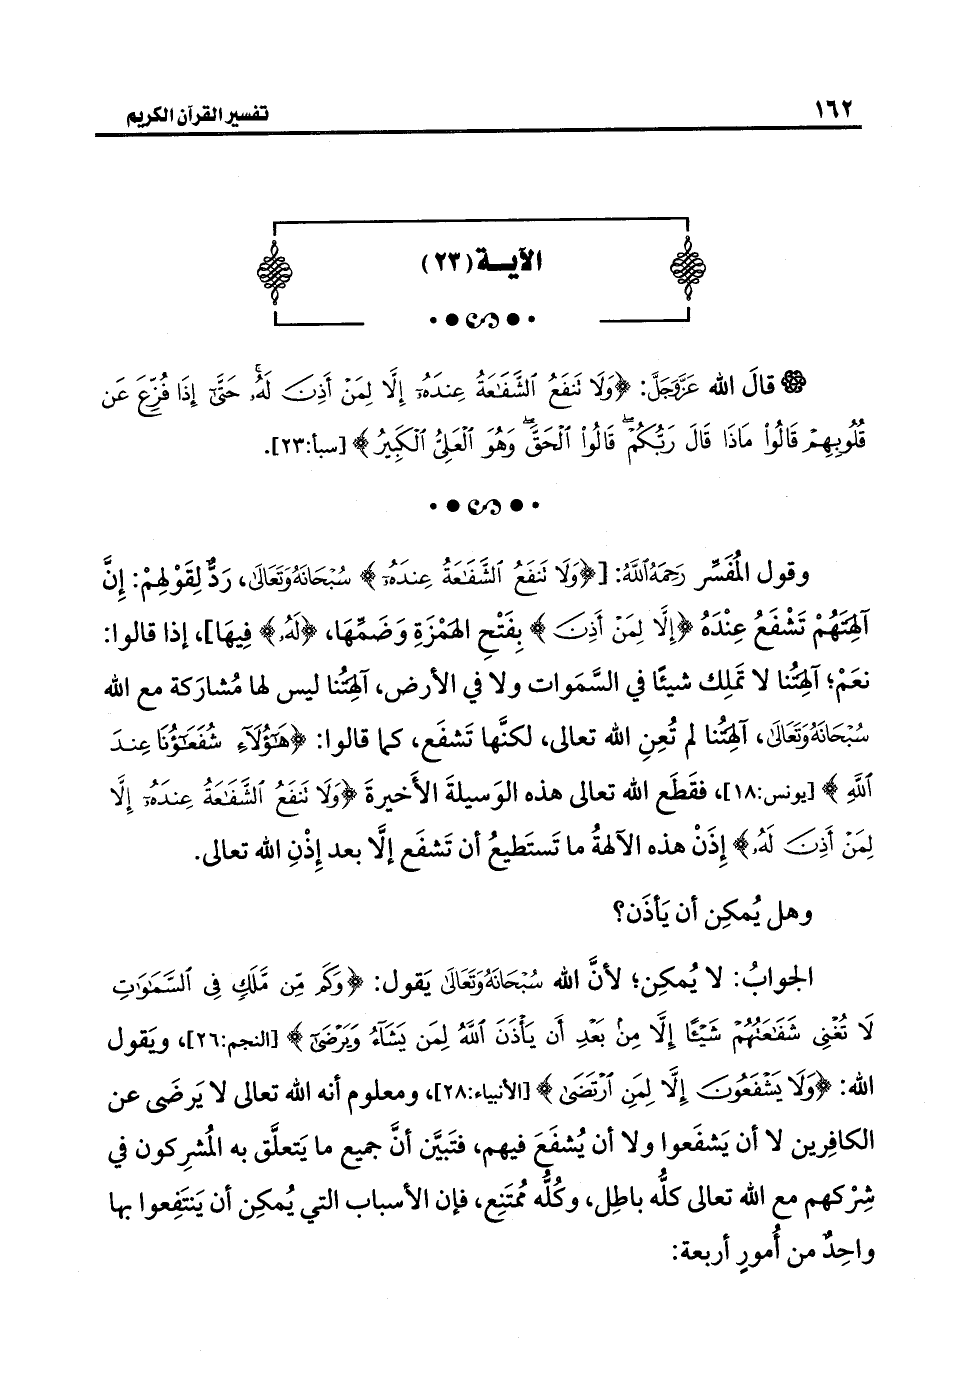 ١٦٢
تفسير القرآن الكريم
الآيـــة (٢٣)
قالَ الله عَزَّوَجَلَّ: ﴿وَلَا تَنفَعُ ٱلشَّفَٰعَةُ عِندَهُۥٓ إِلَّا لِمَنۡ أَذِنَ لَهُۥۚ حَتَّىٰٓ إِذَا فُزِّعَ عَن
قُلُوبِهِمۡ قَالُواْ مَاذَا قَالَ رَبُّكُمۡۖ قَالُواْ ٱلۡحَقَّۖ وَهُوَ ٱلۡعَلِيُّ ٱلۡكَبِيرُ﴾ [سبأ:٢٣].
وقول المُفَسِّر رَحِمَهُ ٱللَّهُ: [﴿وَلَا تَنفَعُ ٱلشَّفَٰعَةُ عِندَهُۥٓ﴾ سُبْحَانَهُ وَتَعَالَى، رَدٌّ لِقَوْلِهِمْ: إِنَّ
آلِهَتَهُمْ تَشْفَعُ عِنْدَهُ ﴿إِلَّا لِمَنۡ أَذِنَ﴾ بِفَتْحِ الهَمْزَةِ وَضَمِّهَا، ﴿لَهُۥ﴾ فِيهَا]، إذا قالوا:
نعَمْ؛ آلهِتُنا لا تَملِك شيئًا في السَّمَوات ولا في الأرض، آلهِتُنا ليس لها مُشارَكة مع الله
سُبْحَانَهُ وَتَعَالَى، آلهِتُنا لم تُعِنِ الله تعالى، لكنَّها تَشفَع، كما قالوا: ﴿هَٰٓؤُلَآءِ شُفَعَٰٓؤُنَا عِندَ
ٱللَّهِ﴾ [يونس:١٨]، فقَطَع الله تعالى هذه الوَسيلةَ الأخيرةَ ﴿وَلَا تَنفَعُ ٱلشَّفَٰعَةُ عِندَهُۥٓ إِلَّا
لِمَنۡ أَذِنَ لَهُۥ﴾ إِذَنْ هذه الآلهةُ ما تَستَطيعُ أن تَشفَع إلَّا بعد إِذْنِ الله تعالى.
وهل يُمكِن أن يَأذَن؟
الجوابُ: لا يُمكِن؛ لأنَّ الله سُبْحَانَهُ وَتَعَالَى يَقول: ﴿وَكَم مِّن مَّلَكٍ فِي ٱلسَّمَٰوَٰتِ
لَا تُغۡنِي شَفَٰعَتُهُمۡ شَيۡـًٔا إِلَّا مِنۢ بَعۡدِ أَن يَأۡذَنَ ٱللَّهُ لِمَن يَشَآءُ وَيَرۡضَىٰٓ﴾ [النجم:٢٦]، ويَقول
الله: ﴿وَلَا يَشۡفَعُونَ إِلَّا لِمَنِ ٱرۡتَضَىٰ﴾ [الأنبياء:٢٨]، ومعلوم أنه الله تعالى لا يَرضَى عن
الكافِرين لا أن يَشفَعوا ولا أن يُشفَعَ فيهم، فتَبيَّن أنَّ جميع ما يَتعلَّق به المُشرِكون في
شِرْكهم مع الله تعالى كلُّه باطِل، وكُلُّه مُمتَنِع، فإن الأسباب التي يُمكِن أن يَنتَفِعوا بها
واحِدٌ من أُمورٍ أربعة: